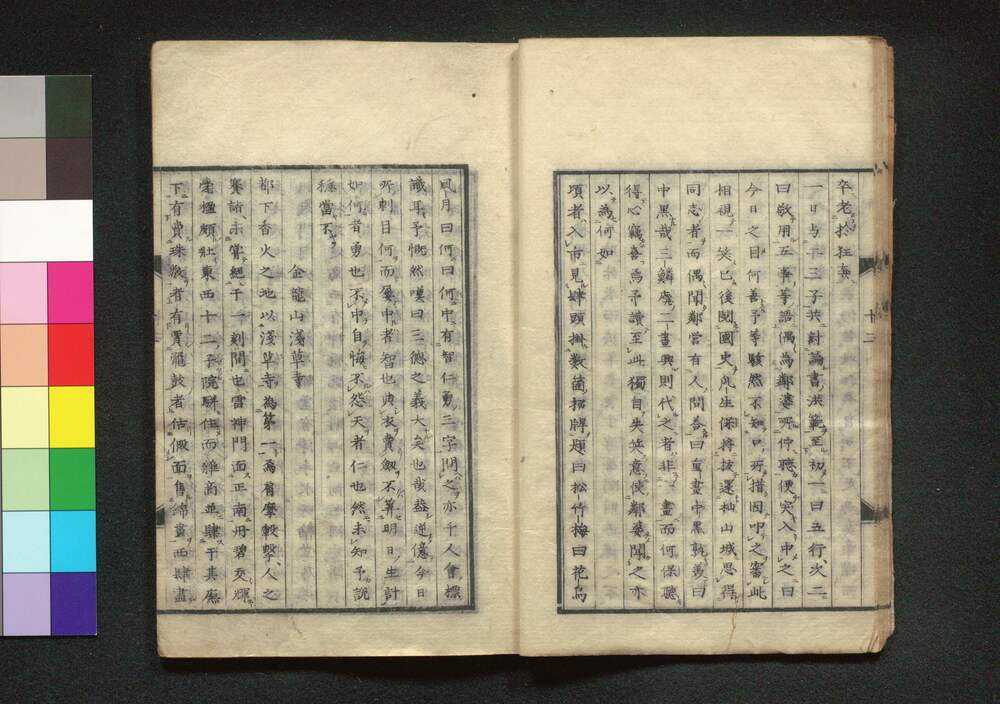 卒老於狂妄
一日与二三子共討論書洪範至初一曰五行次二
曰敬用五事等語偶為鄰婆所仲聴便突入中之曰
今日之目何善予等駭然不知口所措因叩之審此
相視一笑已後閲國史
同志者而偶聞鄰嘗有人問答曰重畫中黒孰羨曰
中黒哉三鱗處二畫興則代之者非一畫而何保聴
得心竊喜為予讀至此獨自失笑意使鄰婆聞之亦
以為何如
頃者入市見肆頭掛数箇招牌題曰松竹梅曰花鳥
風月曰何曰何中有智仁勇三字問之亦千人會標
識耳予慨然嘆曰三德之義大矣也哉蓋逆億今日
所刺目何而屡中者智也典衣賣劔不算明日生計
如何者勇也不中自悔不怨天者仁也然未知予説
穩當不
金龍山淺草寺
都下香火之地以淺草寺為第一肩摩轂擊人之
賽詣未嘗絶于一刻間也雷神門面正南丹碧交輝
宏極頗壯東西十二子院駢住而雜商並肆于其廡
下有賣珠数者有賈鼗鼓者估假面售錦畫西肆盡
十二